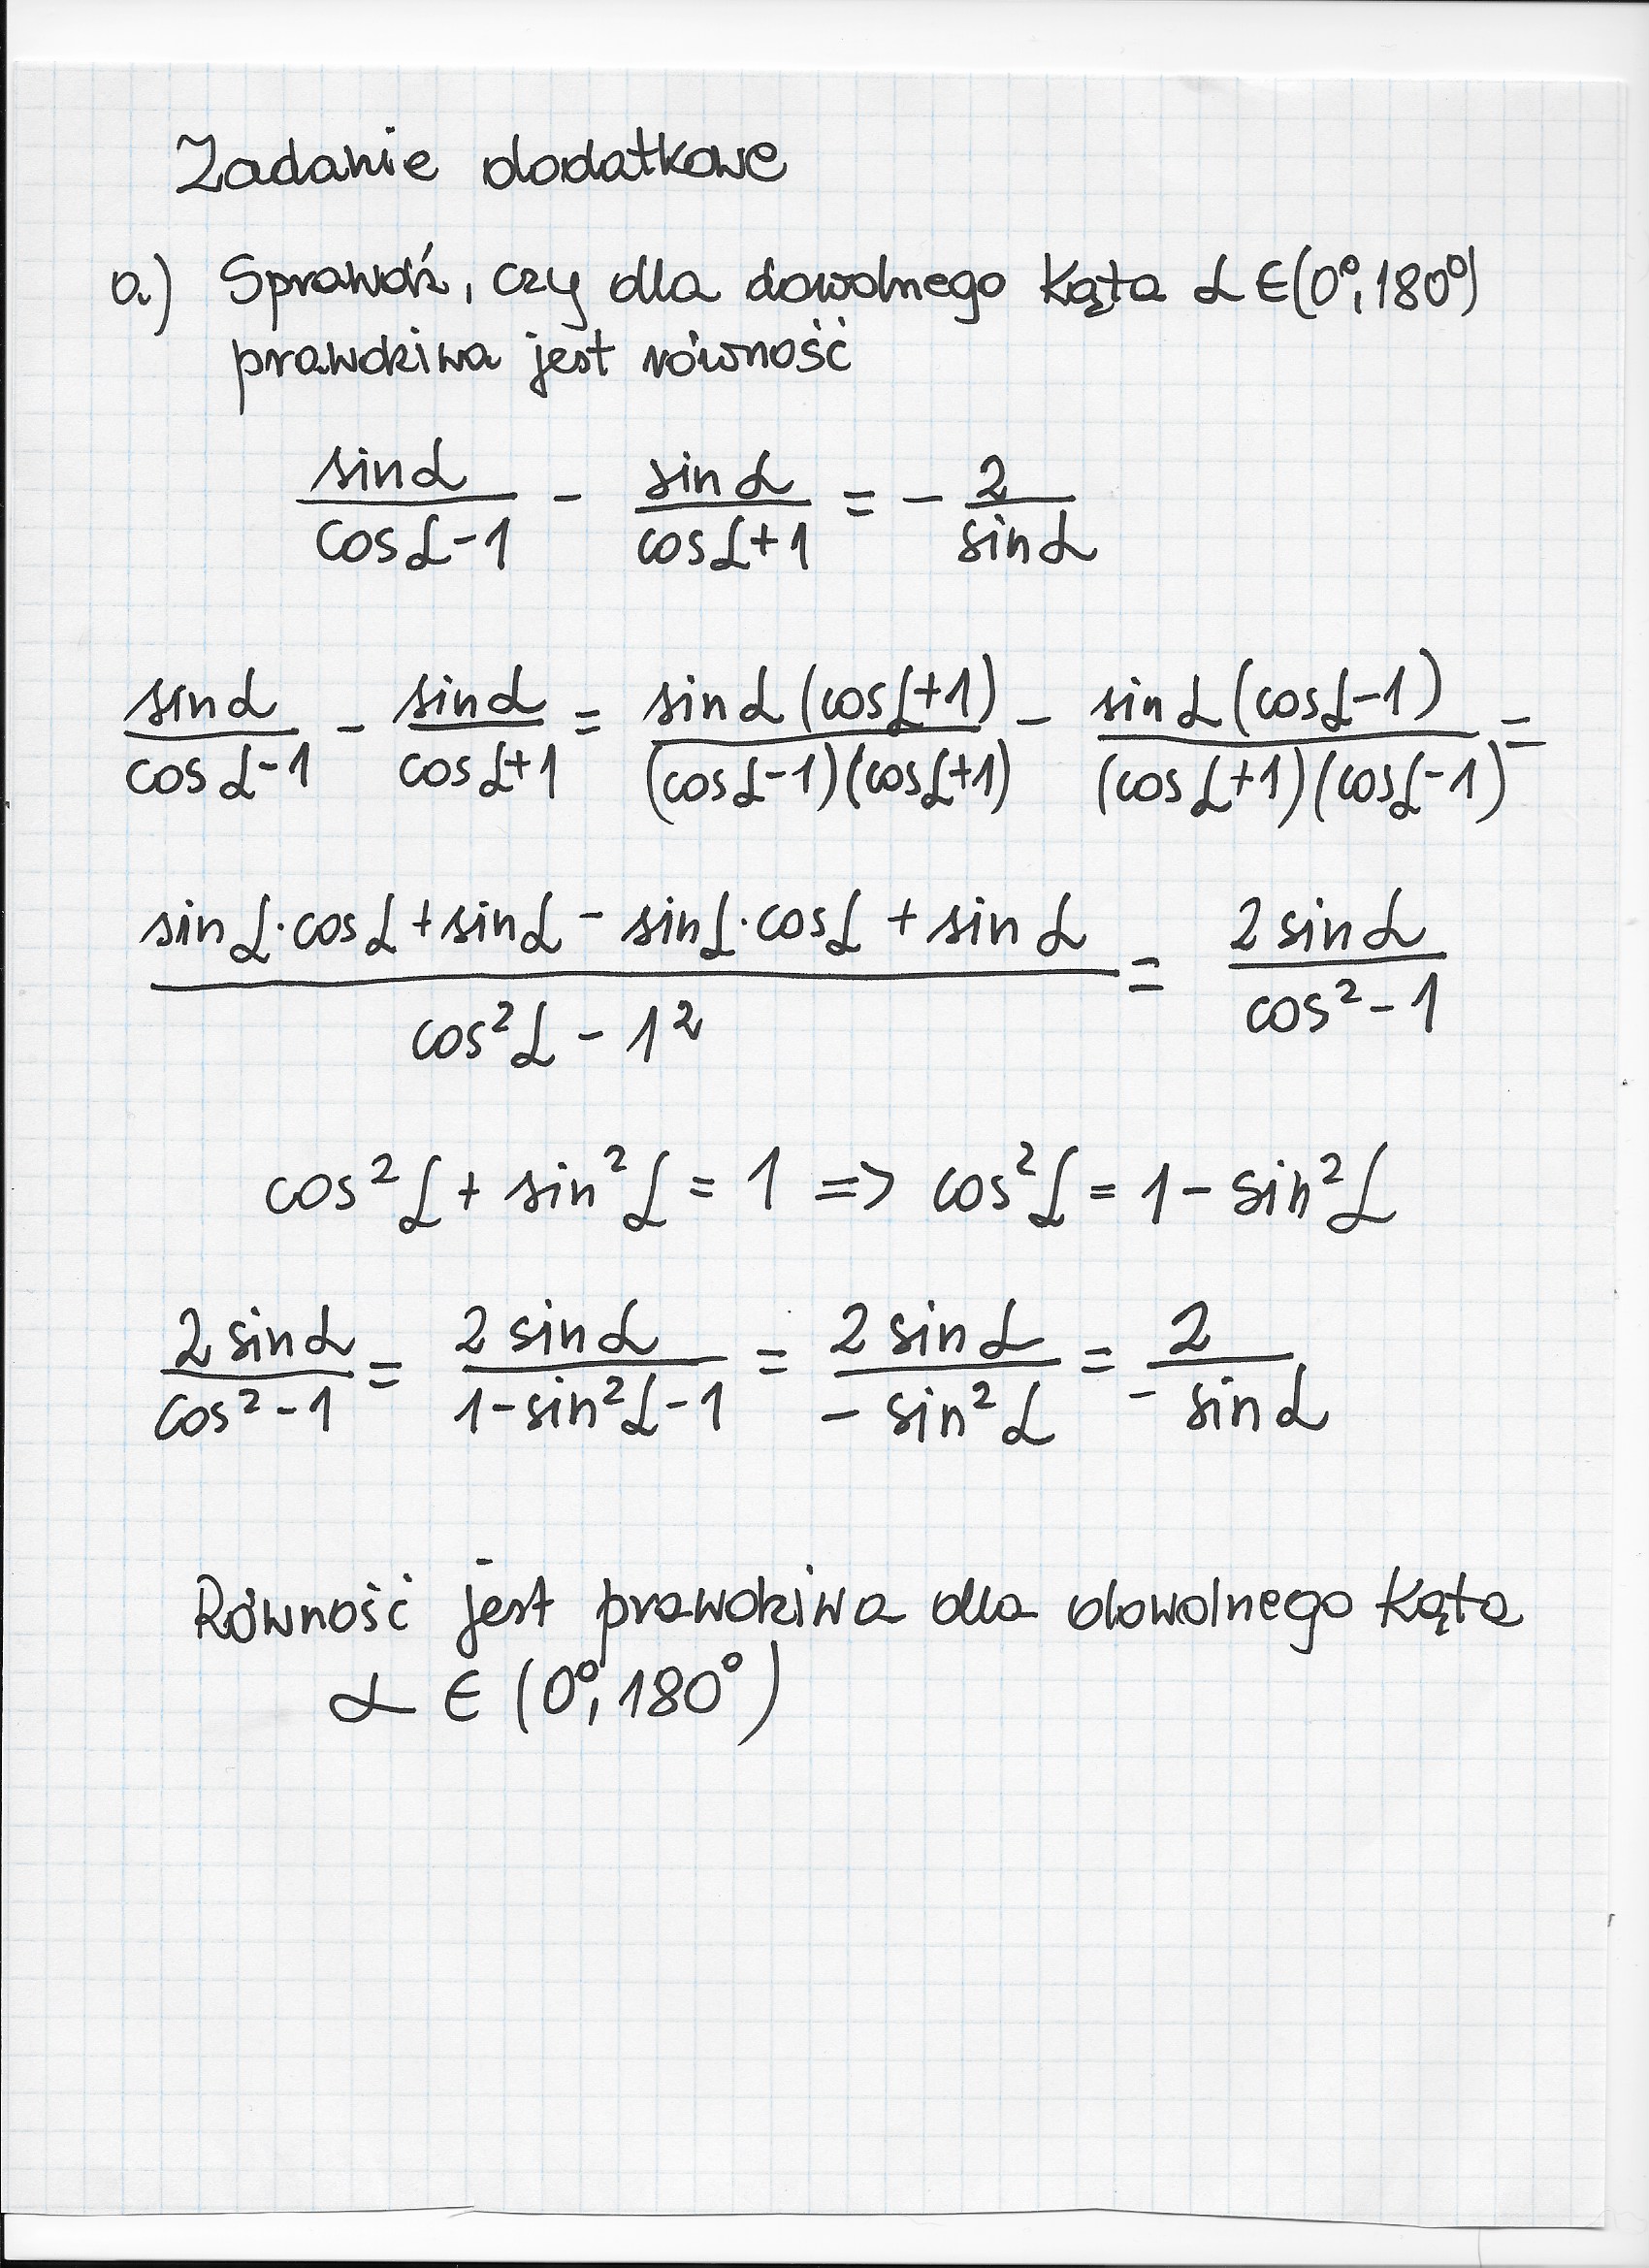 Zadanie dodatkowe
a.) Sprawdź, czy dla dowolnego kąta α ∈ (0°, 180°)
prawdziwa jest równość
sinα/(cosα-1) - sinα/(cosα+1) = - 2/sinα
sinα/(cosα-1) - sinα/(cosα+1) = sinα(cosα+1)/((cosα-1)(cosα+1)) - sinα(cosα-1)/((cosα+1)(cosα-1)) =
(sinα·cosα+sinα - sinα·cosα + sinα)/(cos²α - 1²) = 2sinα/(cos² - 1)
cos²α + sin²α = 1 => cos²α = 1 - sin²α
2sinα/(cos² - 1) = 2sinα/(1-sin²α-1) = 2sinα/(- sin²α) = 2/(- sinα)
Równość jest prawdziwa dla dowolnego kąta
α ∈ (0°, 180°)